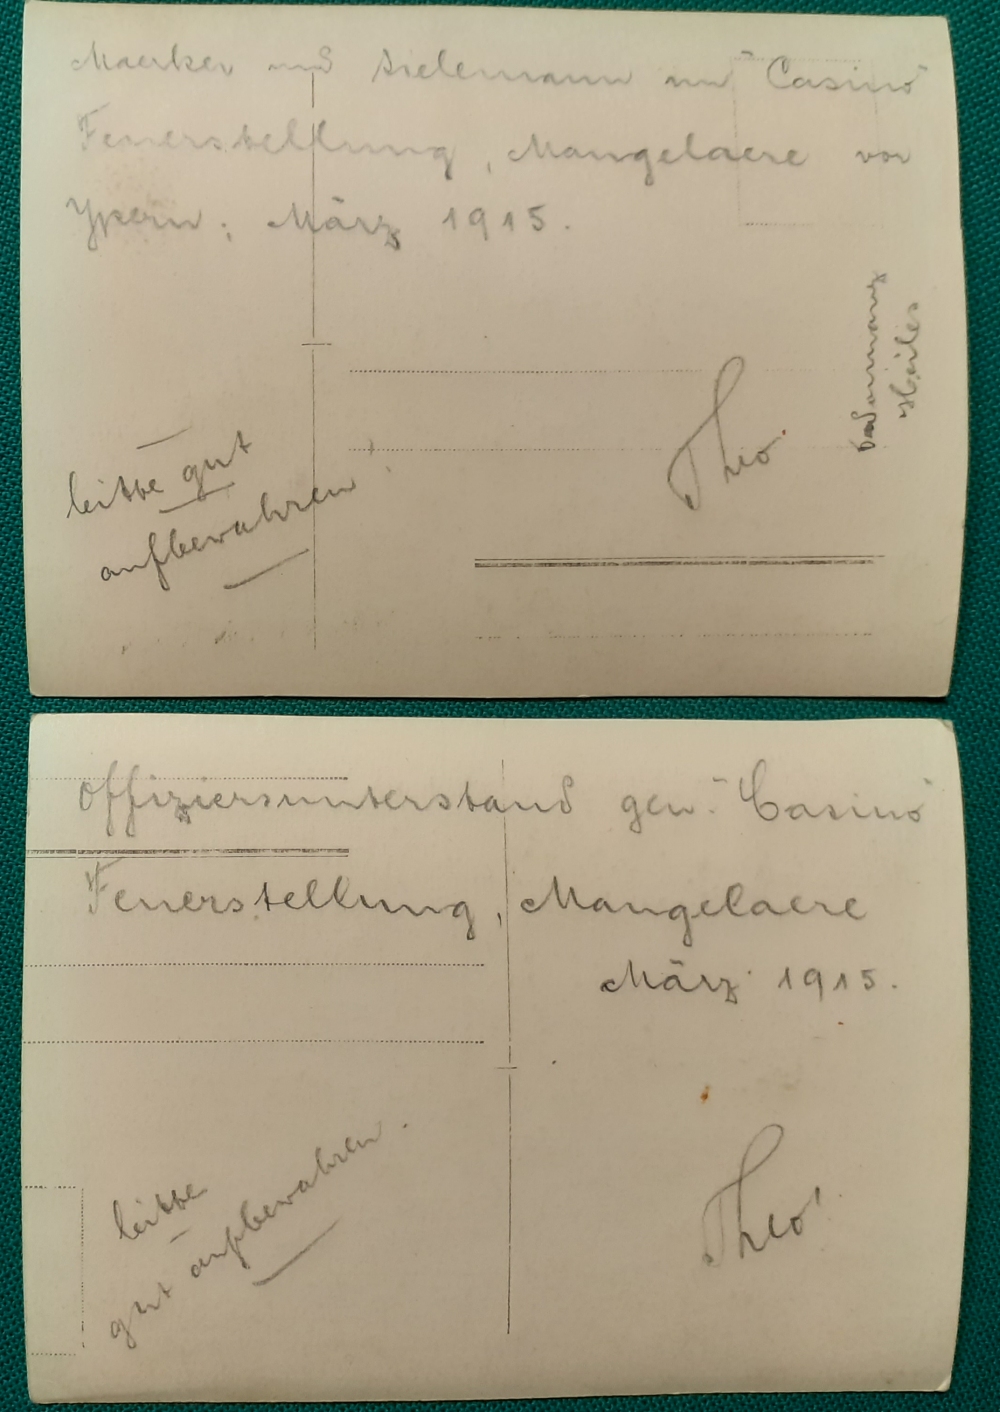 Maerker und Sielemann im "Casino"
Feuerstellung, Mangelaere vor
Ypern; März 1915.
bitte gut
aufbewahren
Theo.
Offiziersunterstand gen. "Casino"
Feuerstellung, Mangelaere
März 1915.
bitte
gut aufbewahren.
Theo